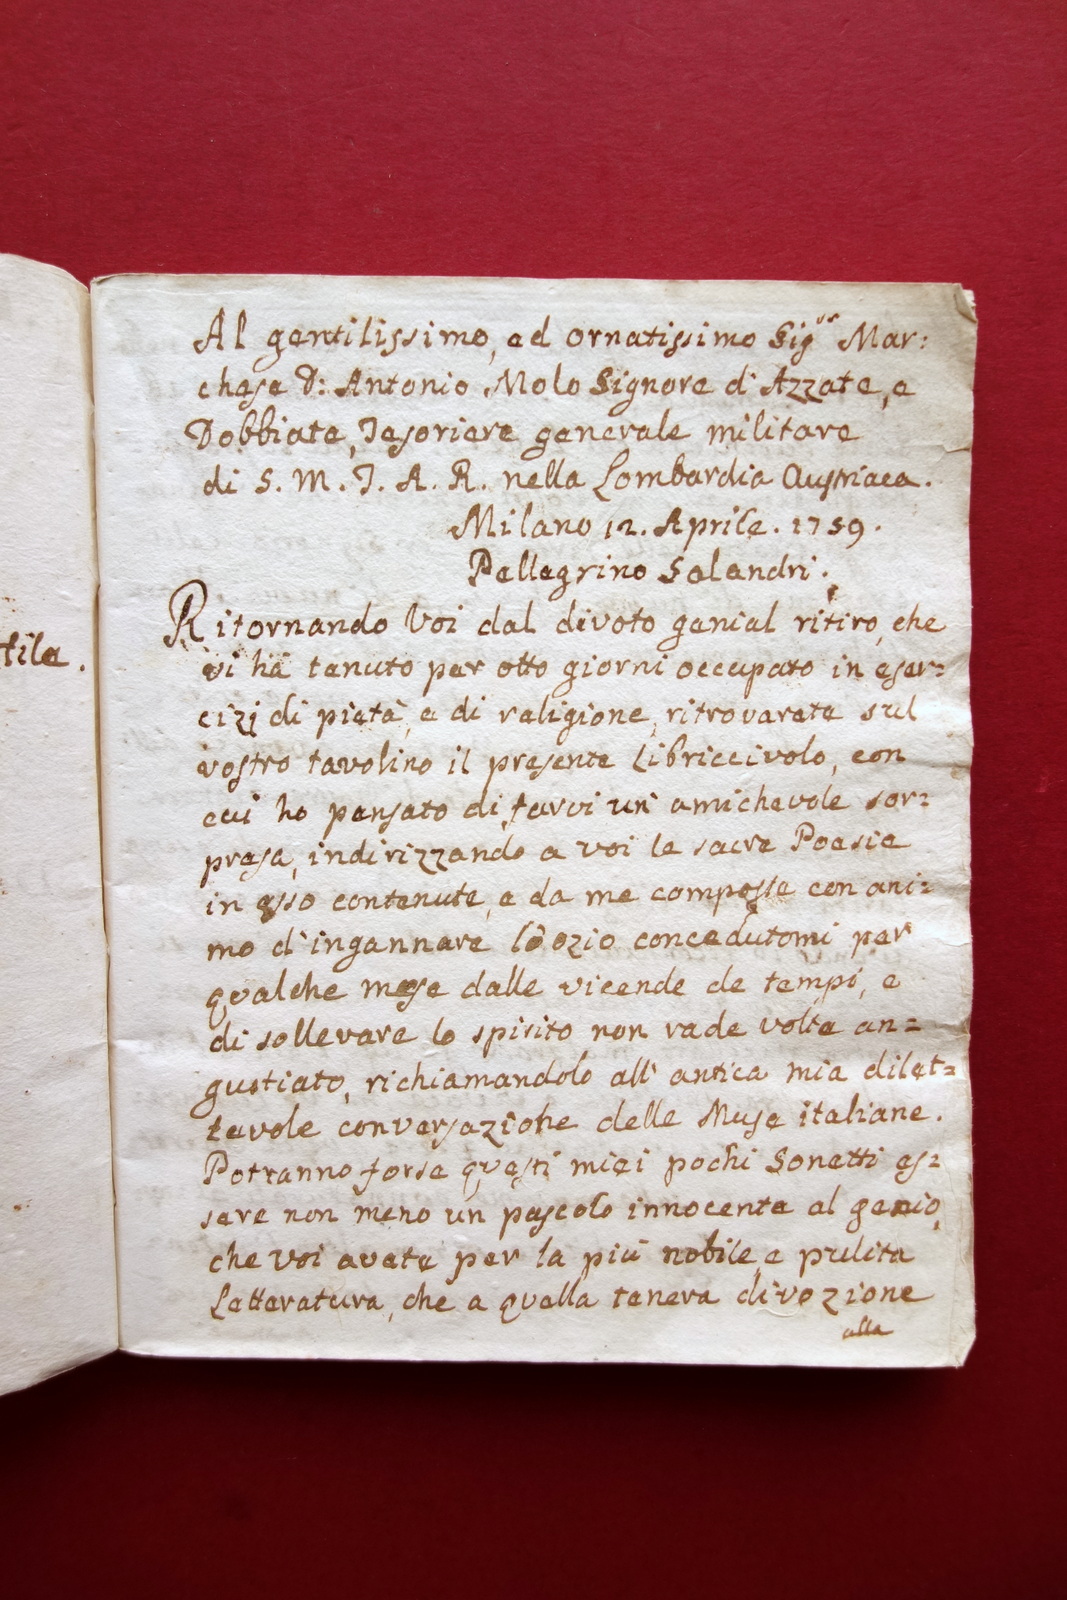 Al gentilissimo, ed ornatissimo Sig.or Mar:
chese D: Antonio Molo Signore d'Azzate, e
Dobbiate, Tesoriere generale militare
di S. M. I. A. R. nella Lombardia Austriaca.
Milano 12. Aprile. 1759.
Pellegrino Salandri.
Ritornando Voi dal divoto genial ritiro, che
vi hà tenuto per otto giorni occupato in eser=
cizj di pietà, e di religione, ritroverete sul
vostro tavolino il presente libriccivolo, con
cui ho pensato di farvi un' amichevole sor=
presa, indirizzando a voi le sacre Poesie
in esso contenute, e da me composte con ani=
mo d'ingannare l'ozio concedutomi per
qualche mese dalle vicende de tempi, e
di sollevare lo spirito non rade volte an=
gustiato, richiamandolo all' antica mia dilet=
tevole conversazione delle Muse italiane.
Potranno forse questi miei pochi Sonetti es=
sere non meno un pascolo innocente al genio,
che voi avete per la più nobile e pulita
Letteratura, che a quella tenera divozione
alla
tile.